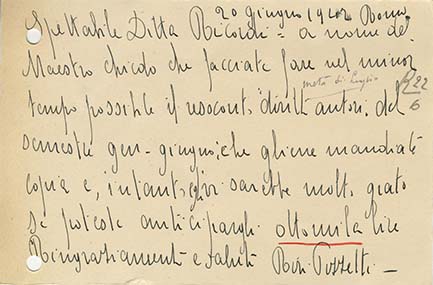 20 giugno 1942 Roma
Spettabile Ditta Ricordi - a nome del
Maestro chiedo che facciate fare nel minor
metà di luglio
tempo possibile il resoconto "diritti autori" del
R 22
6
semestre gen-giugno; che gliene mandiate
copia e, intanto, egli sarebbe molto grato
se poteste anticipargli ottomila lire
Ringraziamenti e saluti Riri Pizzetti -